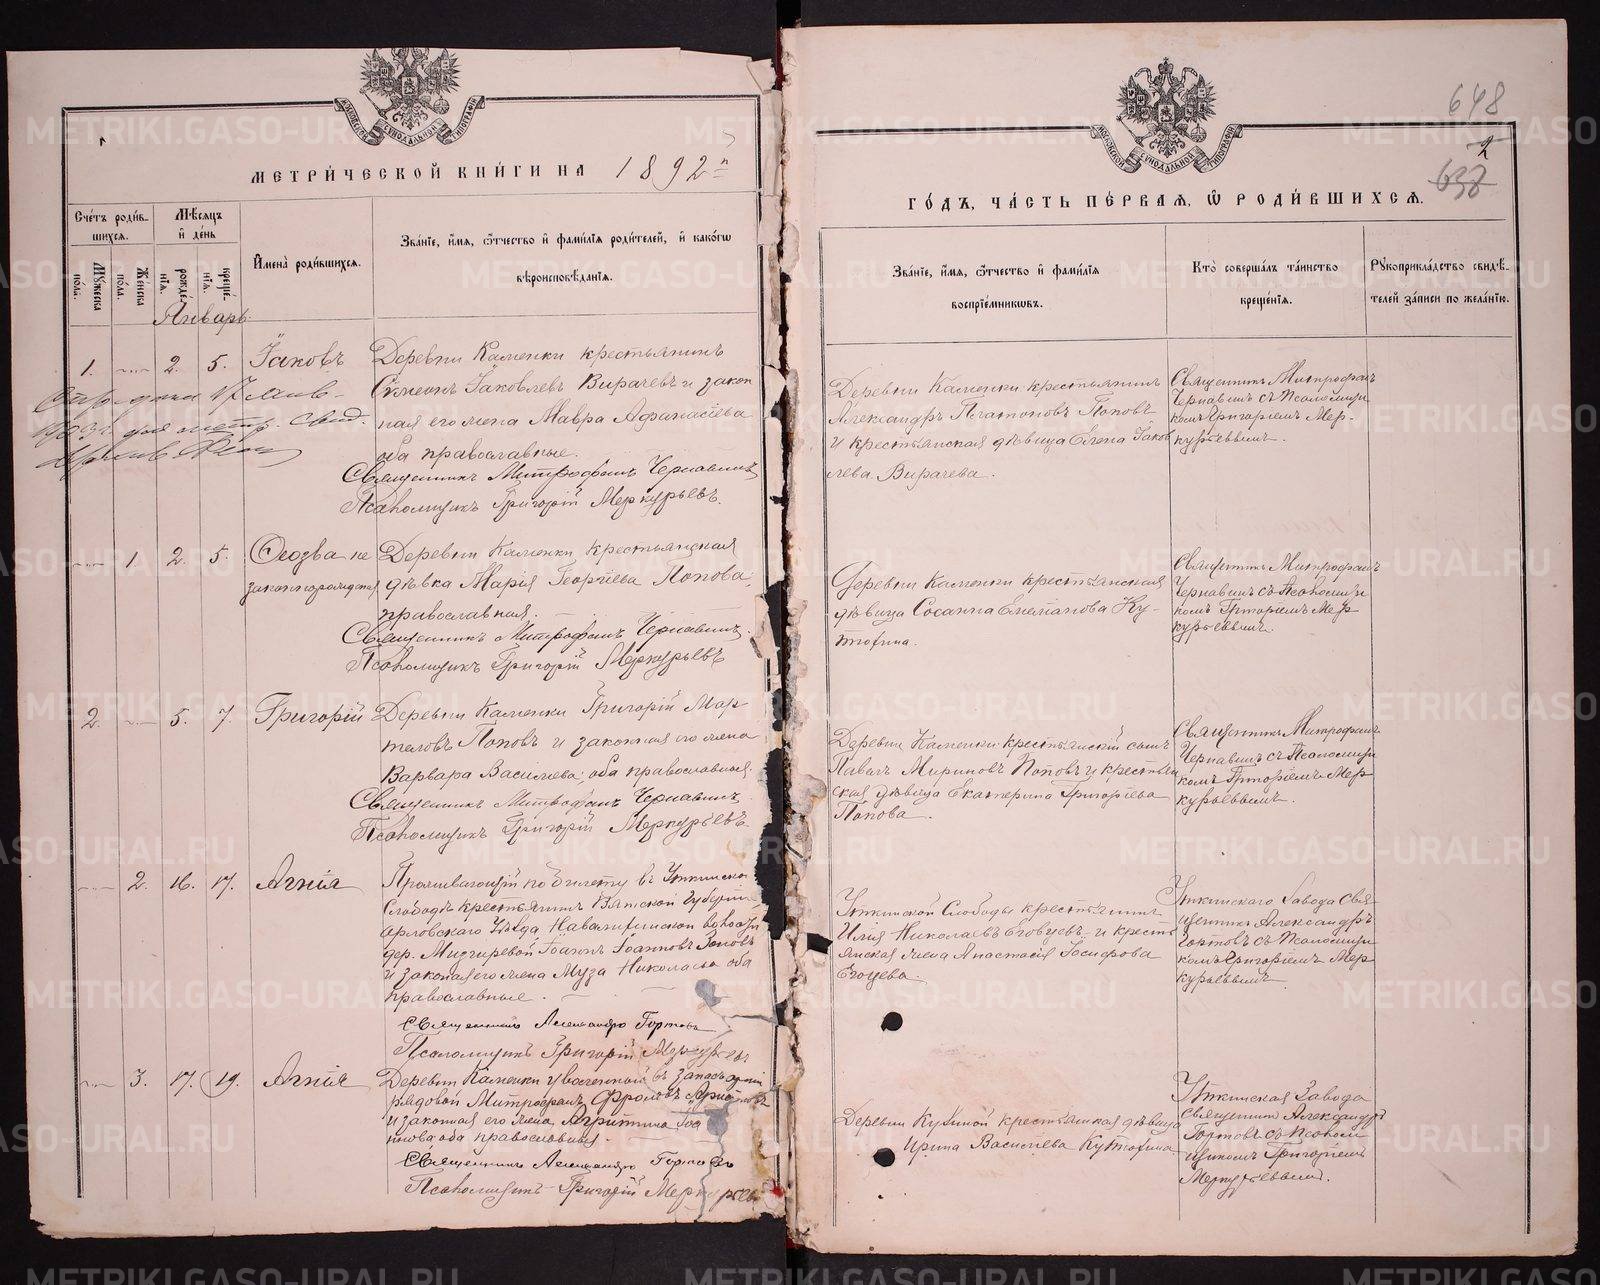 МЕТРИ́ЧЕСКОЙ КНИ́ГИ НА 1892
Сче́тъ роди́в-
шихсѧ.
Мѣ́сѧцъ
и҆ де́нь
Мꙋ́жеска
по́ла.
Же́нска
по́ла.
рожде́-
нїѧ.
креще́-
нїѧ.
И҆мена̀ роди́вшихсѧ.
Зва́нїе, и҆́мѧ, ѻ҆́тчество и҆ фами́лїѧ роди́телей, и҆ како́гѡ
вѣроисповѣ́данїѧ.
Январь
1. 2. 5. Іаковъ
Деревни Каменки крестьянинъ
Симеонъ Іаковлевъ Вирачевъ и закон
ная его жена Мавра Афанасіева
оба православные.
Священникъ Митрофанъ Чернавинъ
Псаломщикъ Григорій Меркурьевъ.
1. 2. 5.
Деревни Каменки крестьянская
дѣвка Марія Георгіева Попова,
православная.
Священникъ Митрофанъ Чернавинъ.
Псаломщикъ Григорій Меркурьевъ
2. 5. 7. Григорій
Деревни Каменки Григорій Мар-
теловъ Поповъ и законная его жена
Варвара Василіева, оба православные.
Священникъ Митрофанъ Чернавинъ
Псаломщикъ Григорій Меркурьевъ
2. 16. 17. Агнія
Проживающій по билету въ Уткинской
Слободѣ крестьянинъ Вятской губерніи
Орловскаго Уѣзда
дер. Іоаннъ Іоанновъ
и законная его жена Муза Николаева оба
православные.
Священникъ Александръ Гортовъ
Псаломщикъ Григорій Меркурьевъ
3. 17. 19. Агнія
Деревни Каменки уволенный въ запасъ арміи
рядовой Митрофанъ Фроловъ
и законная его жена Агриппина
оба православные.
Священникъ Александръ Гортовъ
Псаломщикъ Григорій Меркурьевъ
648
2
638
ГО́ДЪ, ЧА́СТЬ ПЕ́РВАѦ, Ѽ РОДИ́ВШИХСѦ.
Зва́нїе, и҆́мѧ, ѻ҆́тчество и҆ фами́лїѧ
воспрїе́мникѡвъ.
Кто̀ соверша́лъ та́инство
креще́нїѧ.
Рꙋкоприкла́дство свидѣ́-
телей за́писи по жела́нїю.
Деревни Каменки крестьянинъ
Александръ Платоновъ Поповъ
и крестьянская дѣвица Елена Іаков
лева Вирачева.
Священникъ Митрофанъ
Чернавинъ съ Псаломщи
комъ Григоріемъ Мер-
курьевымъ.
Деревни Каменки крестьянская
дѣвица Сосанна Емельянова Ку-
тюхина.
Священникъ Митрофанъ
Чернавинъ съ Псаломщи
комъ Григоріемъ Мер
курьевымъ.
Деревни Каменки крестьянскій сынъ
Павелъ Мироновъ Поповъ и крестьян
ская дѣвица Екатерина Григоріева
Попова.
Священникъ Митрофанъ
Чернавинъ съ Псаломщи
комъ Григоріемъ Мер
курьевымъ.
Уткинской Слободы крестьянинъ
Илія Николаевъ и кресть
янская жена Анастасія Іосифова
Уткинскаго Завода Свя-
щенникъ Александръ
Гортовъ съ Псаломщи
комъ Григоріемъ Мер
курьевымъ
Деревни Курьиной крестьянская дѣвица
Ирина Василіева Кутюхина
Уткинская Завода
Священникъ Александръ
Гортовъ съ Псалом
щикомъ Григоріемъ
Меркурьевымъ.
METRIKI.GASO-URAL.RU